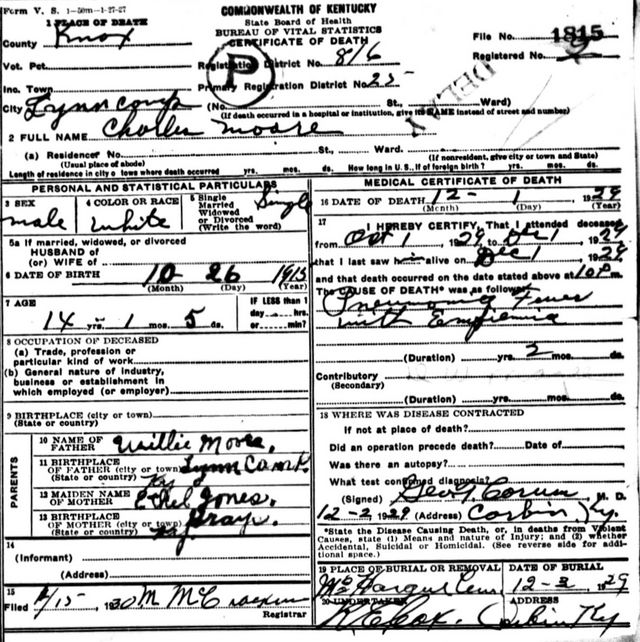 Form V. S. 1-50m-1-27-27
COMMONWEALTH OF KENTUCKY
State Board of Health
BUREAU OF VITAL STATISTICS
CERTIFICATE OF DEATH
1 PLACE OF DEATH
County Knox
File No. 1815
Registered No.
Vot. Pct.
Registration District No. 816
P
DELAY
Inc. Town
Primary Registration District No. 25
City Lynn Camp (No. St., Ward)
(If death occurred in a hospital or institution, give its NAME instead of street and number)
2 FULL NAME Charles Moore
(a) Residence No. St., Ward.
(Usual place of abode) (If nonresident, give city or town and State)
Length of residence in city or town where death occurred yrs. mos. ds. How long in U. S., if of foreign birth? yrs. mos. ds.
PERSONAL AND STATISTICAL PARTICULARS
3 SEX
male
4 COLOR OR RACE
White
5 Single
Married
Widowed
or Divorced
(Write the word)
Single
5a If married, widowed, or divorced
HUSBAND of
(or) WIFE of
6 DATE OF BIRTH 10 26 1915
(Month) (Day) (Year)
7 AGE
14 yrs. 1 mos. 5 ds.
IF LESS than 1
day hrs.
or min?
8 OCCUPATION OF DECEASED
(a) Trade, profession or
particular kind of work
(b) General nature of industry,
business or establishment in
which employed (or employer)
9 BIRTHPLACE (city or town)
(State or country)
PARENTS
10 NAME OF
FATHER Willie Moore.
11 BIRTHPLACE
OF FATHER (city or town) Lynn Camp.
(State or country) Ky
12 MAIDEN NAME
OF MOTHER Ethel Jones.
13 BIRTHPLACE
OF MOTHER (city or town) Gray.
(State or country) Ky
14
(Informant)
(Address)
15
Filed 4/15, 1930 M McCracken
Registrar
MEDICAL CERTIFICATE OF DEATH
16 DATE OF DEATH 12 - 1, 1929
(Month) (Day) (Year)
17
I HEREBY CERTIFY, That I attended deceased
from Oct 1, 1929, to Dec 1, 1929
that I last saw h alive on Dec 1, 1929
and that death occurred on the date stated above at 10 P m.
The CAUSE OF DEATH* was as follows:
Pneumonia Fever
with Empiemia
(Duration) yrs. 2 mos. ds.
Contributory
(Secondary)
(Duration) yrs. mos. ds.
18 WHERE WAS DISEASE CONTRACTED
If not at place of death?
Did an operation precede death? Date of
Was there an autopsy?
What test confirmed diagnosis?
(Signed) Geo. T. Corum M. D.
12-2, 1929 (Address) Corbin Ky.
*State the Disease Causing Death, or, in deaths from Violent
Causes, state (1) Means and nature of Injury; and (2) whether
Accidental, Suicidal or Homicidal. (See reverse side for addi-
tional space.)
19 PLACE OF BURIAL OR REMOVAL DATE OF BURIAL
McHargue Cem 12-3 1929
20 UNDERTAKER ADDRESS
Cox. Corbin Ky